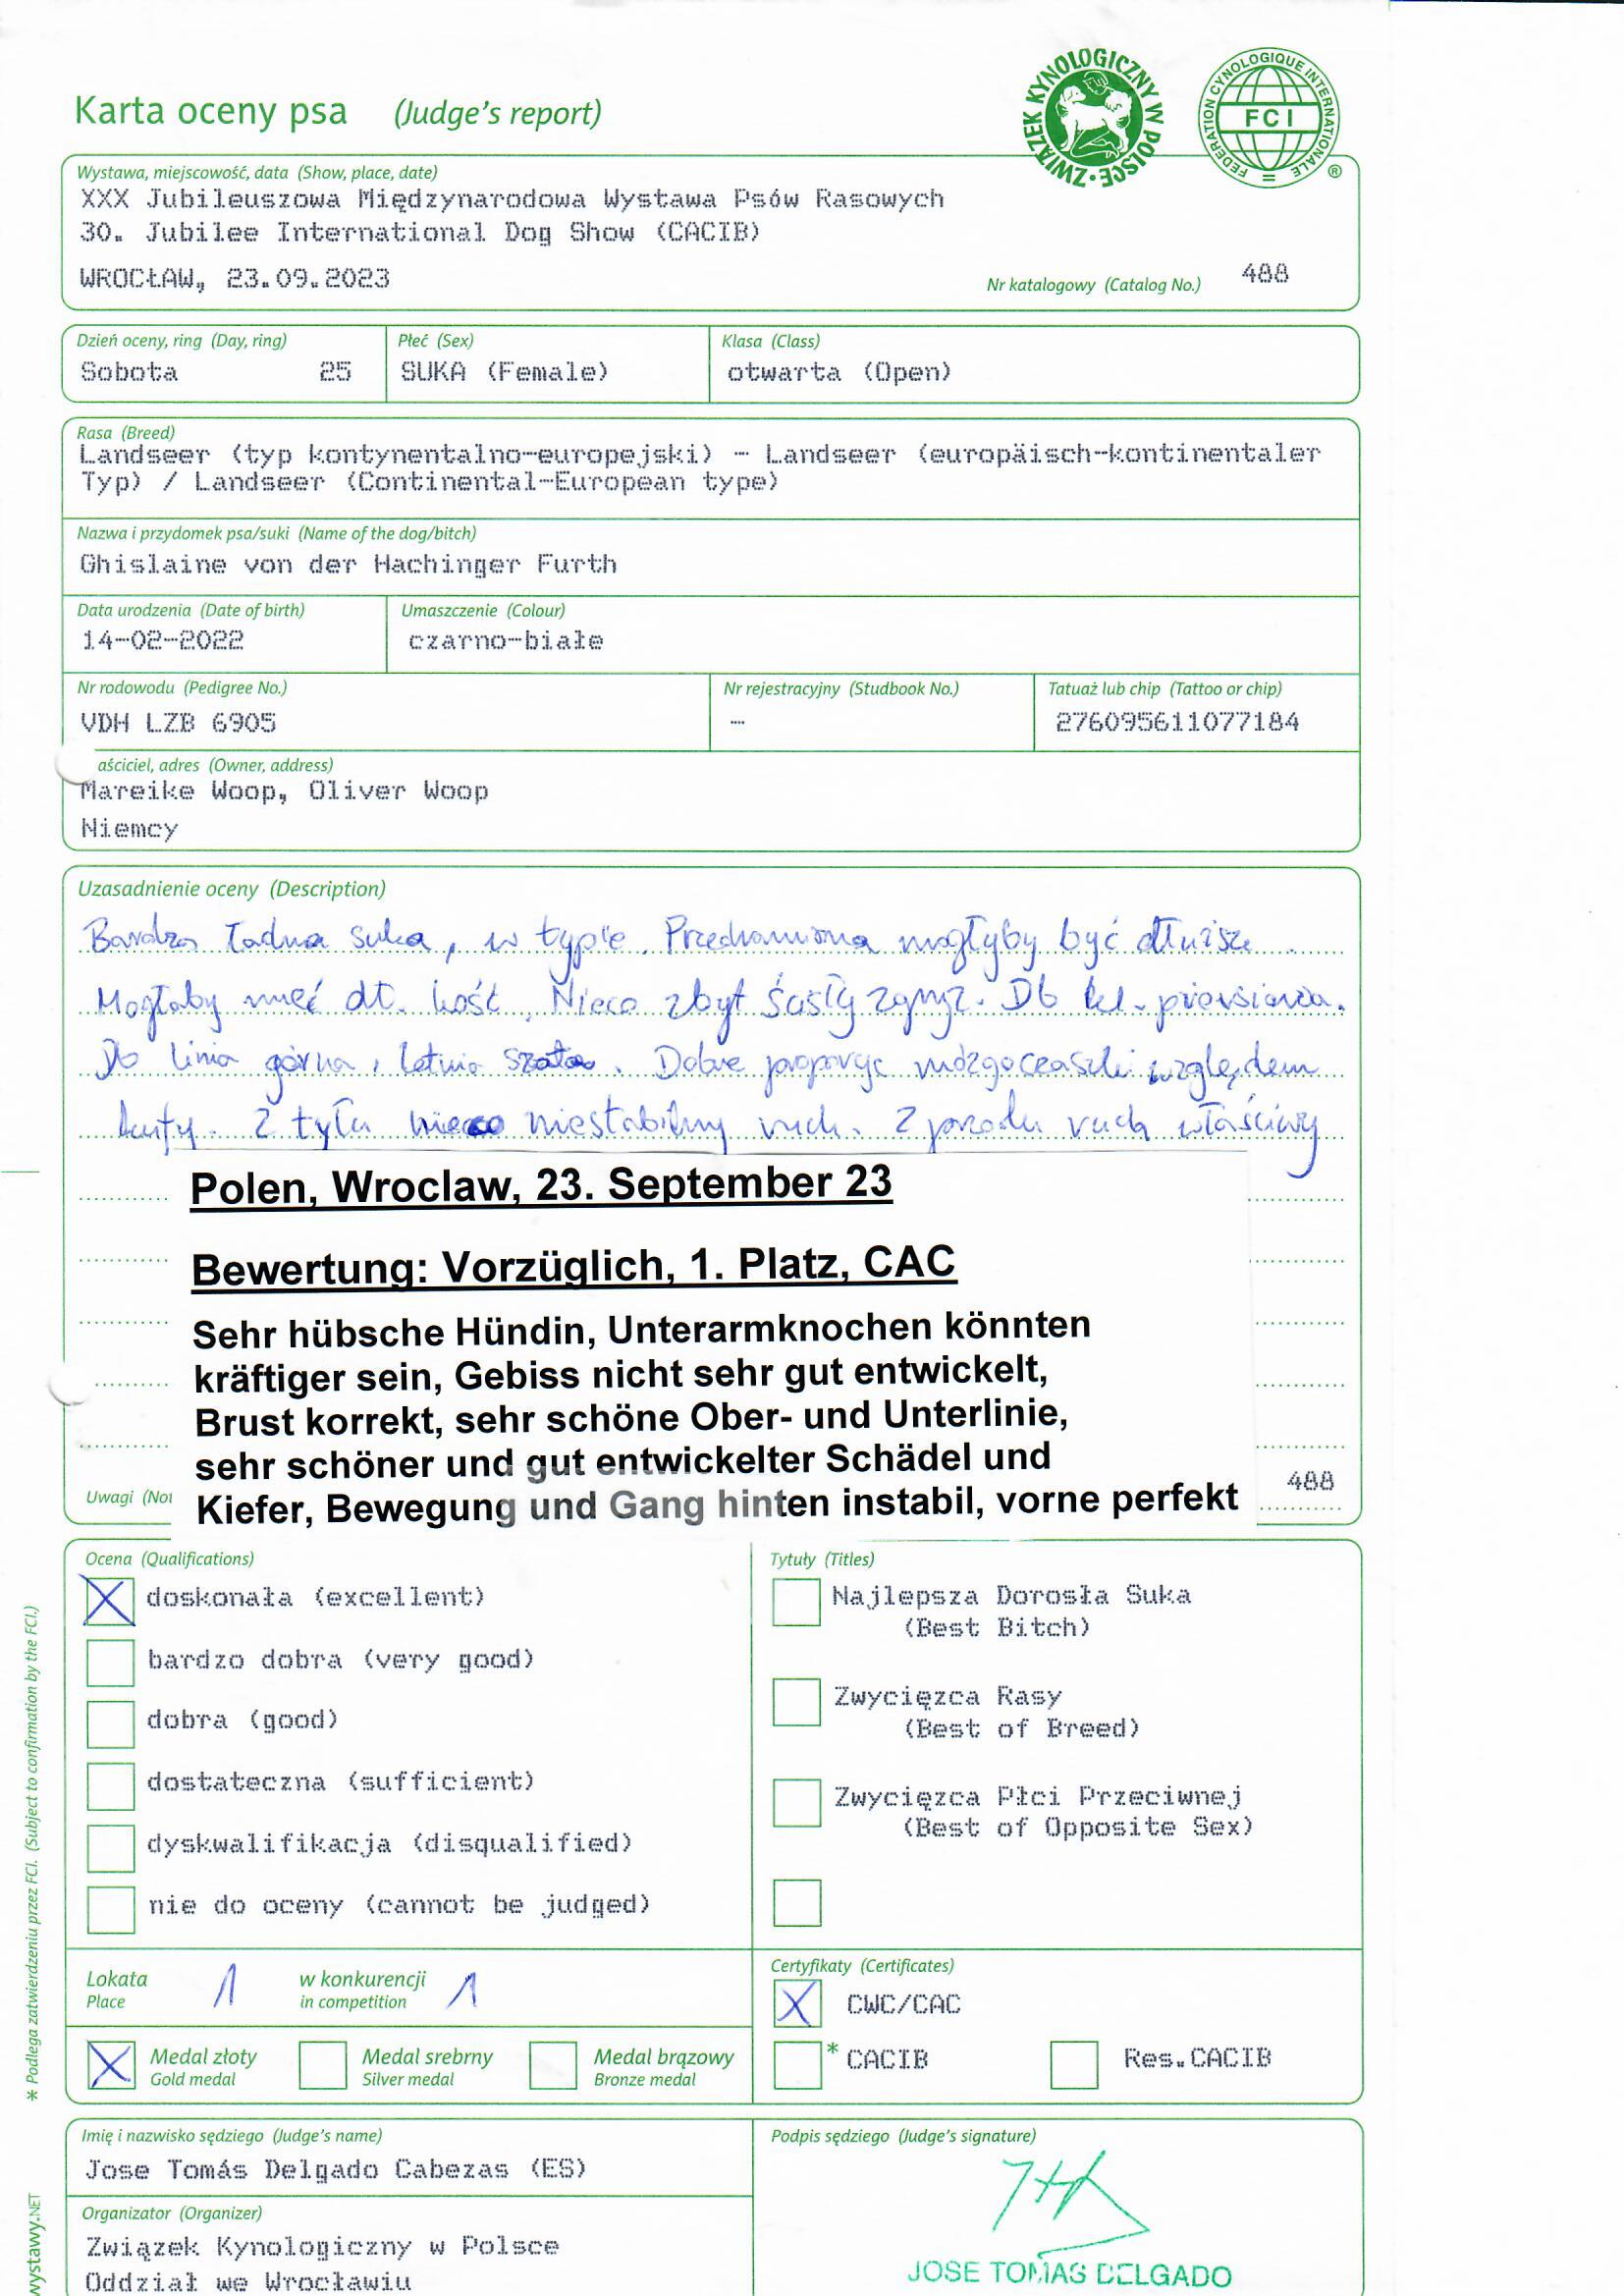 Karta oceny psa (Judge's report)
ZWIĄZEK KYNOLOGICZNY W POLSCE
FEDERATION CYNOLOGIQUE INTERNATIONALE
FCI
®
Wystawa, miejscowość, data (Show, place, date)
XXX Jubileuszowa Międzynarodowa Wystawa Psów Rasowych
30. Jubilee International Dog Show (CACIB)
WROCŁAW, 23.09.2023
Nr katalogowy (Catalog No.) 488
Dzień oceny, ring (Day, ring) Płeć (Sex) Klasa (Class)
Sobota 25 SUKA (Female) otwarta (Open)
Rasa (Breed)
Landseer (typ kontynentalno-europejski) - Landseer (europäisch-kontinentaler
Typ) / Landseer (Continental-European type)
Nazwa i przydomek psa/suki (Name of the dog/bitch)
Ghislaine von der Hachinger Furth
Data urodzenia (Date of birth) Umaszczenie (Colour)
14-02-2022 czarno-białe
Nr rodowodu (Pedigree No.) Nr rejestracyjny (Studbook No.) Tatuaż lub chip (Tattoo or chip)
VDH LZB 6905 - 276095611077184
aściciel, adres (Owner, address)
Mareike Woop, Oliver Woop
Niemcy
Uzasadnienie oceny (Description)
Bardzo ładna suka, w typie. Przedramiona mogłyby być dłuższe.
Mogłaby mieć dł. kość. Nieco zbyt ścisły zgryz. Db kl. piersiowa.
Db linia górna, letnia szata. Dobre proporcje mózgoczaszki względem
kufy. Z tyłu nieco niestabilny ruch. Z przodu ruch właściwy
Polen, Wroclaw, 23. September 23
Bewertung: Vorzüglich, 1. Platz, CAC
Sehr hübsche Hündin, Unterarmknochen könnten
kräftiger sein, Gebiss nicht sehr gut entwickelt,
Brust korrekt, sehr schöne Ober- und Unterlinie,
sehr schöner und gut entwickelter Schädel und
Kiefer, Bewegung und Gang hinten instabil, vorne perfekt
488
Uwagi (Not
Ocena (Qualifications)
doskonała (excellent)
bardzo dobra (very good)
dobra (good)
dostateczna (sufficient)
dyskwalifikacja (disqualified)
nie do oceny (cannot be judged)
Tytuły (Titles)
Najlepsza Dorosła Suka
(Best Bitch)
Zwycięzca Rasy
(Best of Breed)
Zwycięzca Płci Przeciwnej
(Best of Opposite Sex)
Lokata 1 w konkurencji 1
Place in competition
Medal złoty Medal srebrny Medal brązowy
Gold medal Silver medal Bronze medal
Certyfikaty (Certificates)
CWC/CAC
* CACIB Res.CACIB
Imię i nazwisko sędziego (Judge's name)
Jose Tomás Delgado Cabezas (ES)
Organizator (Organizer)
Związek Kynologiczny w Polsce
Oddział we Wrocławiu
Podpis sędziego (Judge's signature)
JOSE TOMAS DELGADO
* Podlega zatwierdzeniu przez FCI. (Subject to confirmation by the FCI.)
wystawy.NET